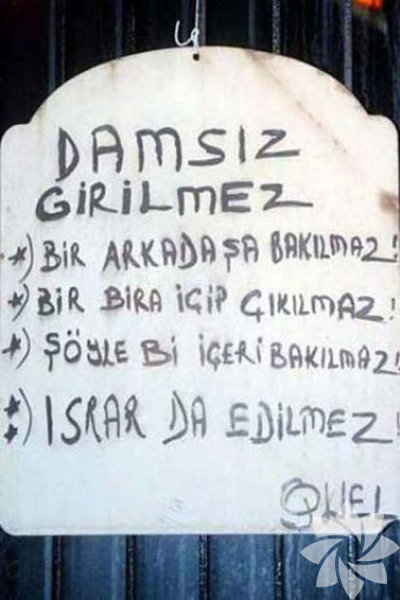 DAMSIZ
GİRİLMEZ
*) BİR ARKADAŞA BAKILMAZ!
*) BİR BİRA İÇİP ÇIKILMAZ!
*) ŞÖYLE Bİ İÇERİ BAKILMAZ!
*) ISRAR DA EDİLMEZ!